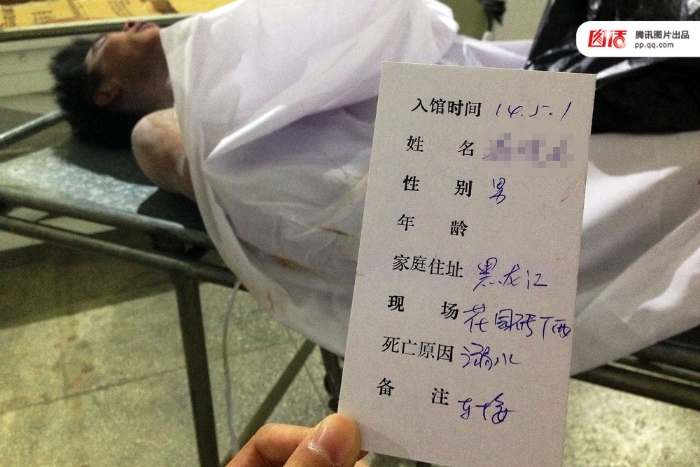 图话
腾讯图片出品
pp.qq.com
入馆时间 14.5.1
姓 名
性 别 男
年 龄
家庭住址 黑龙江
现 场 花园砖厂西
死亡原因 溺水
备 注